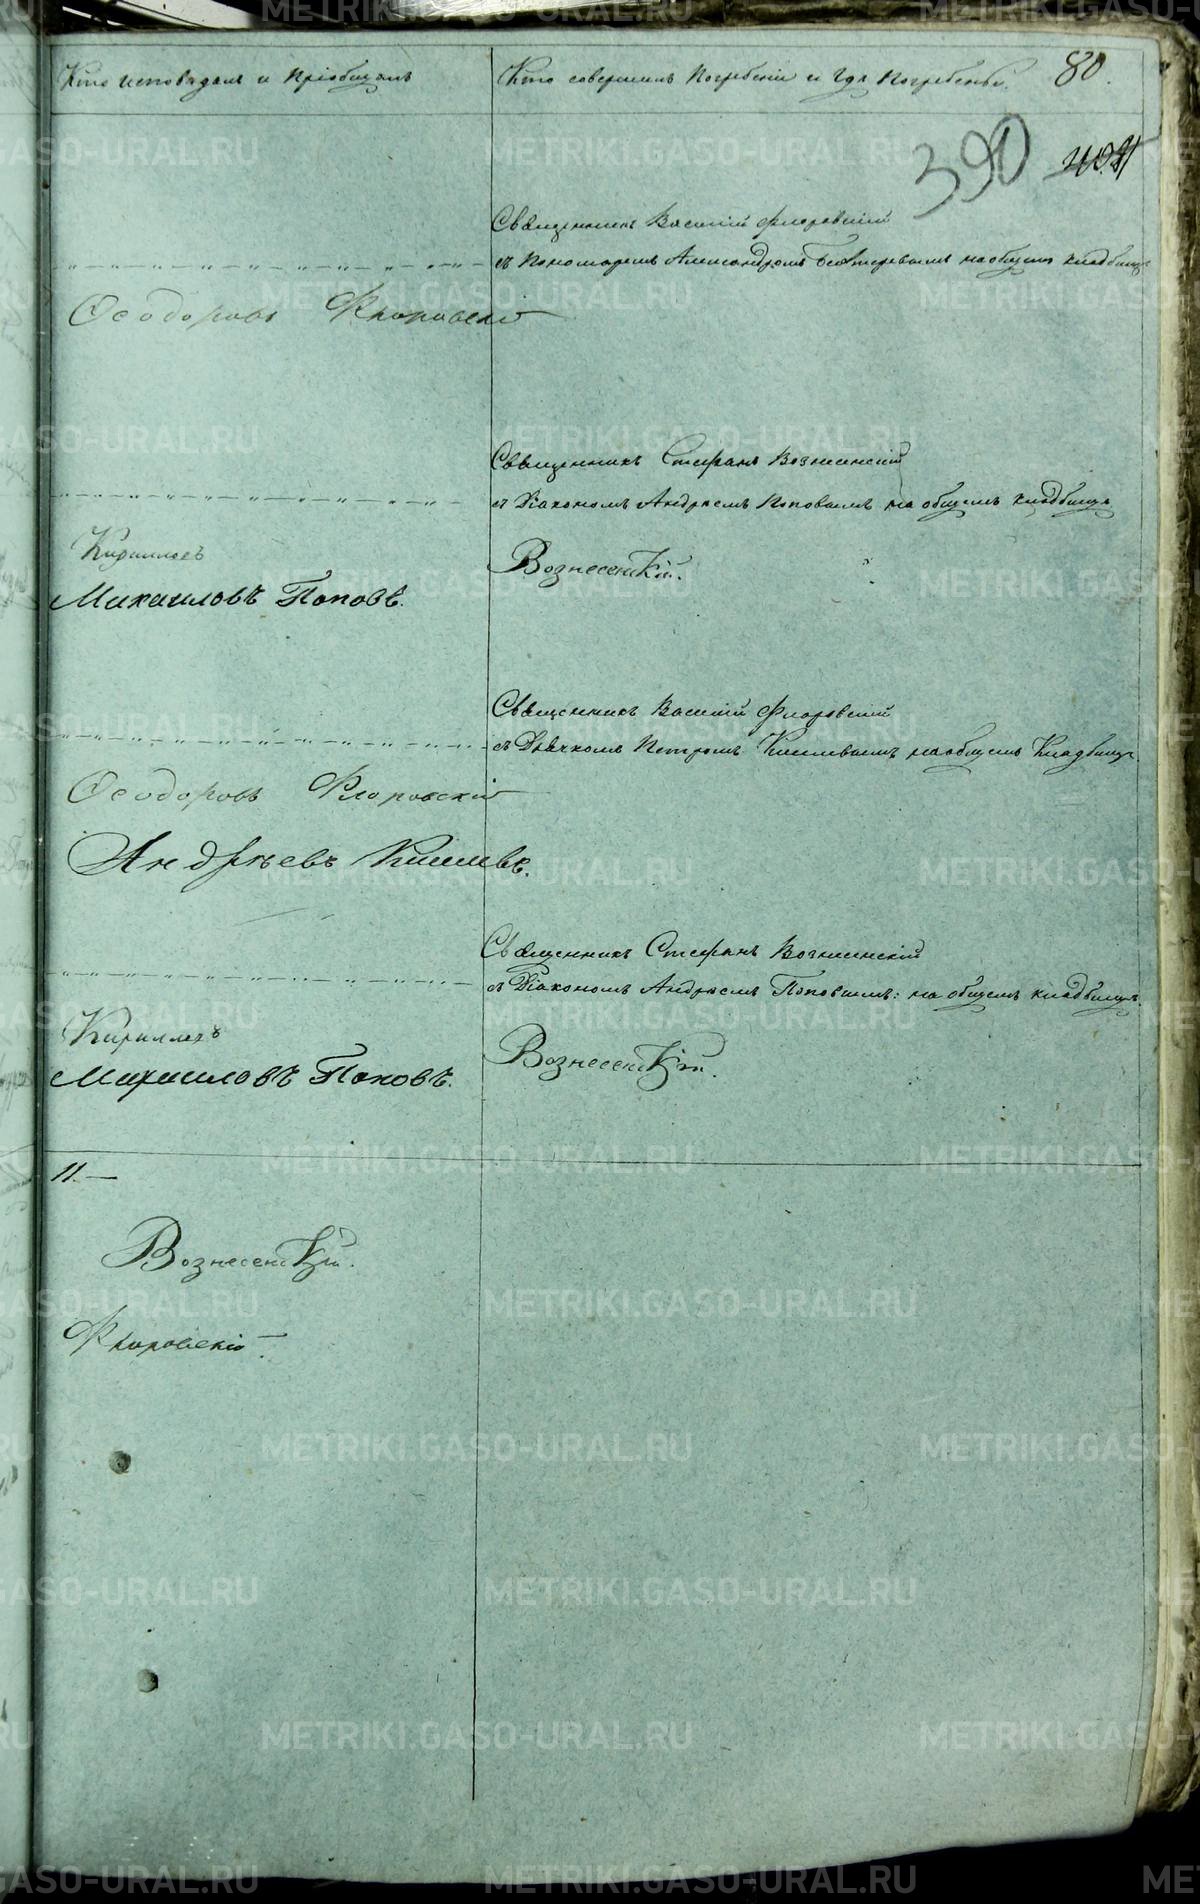 Кто исповѣдалъ и пріобщалъ
Кто совершилъ погребеніе и гдѣ погребены.
80.
390
Священникъ Василій Флоровскій
съ Пономаремъ Александромъ на общемъ кладбищѣ
Ѳеодоровъ Флоровскій
Священникъ Стефанъ Вознесенскій
съ Діакономъ Андреемъ Поповымъ на общемъ кладбищѣ
Кирилловъ
Вознесенскій.
Михаиловъ Поповъ.
Священникъ Василій Флоровскій
съ Дьячкомъ Петромъ Киселевымъ на общемъ Кладбищѣ.
Ѳеодоровъ Флоровскій
Андрѣевъ Киселевъ.
Священникъ Стефанъ Вознесенскій
съ Діакономъ Андреемъ Поповымъ: на общемъ кладбищѣ.
Кирилловъ
Вознесенскій.
Михаиловъ Поповъ.
11.—
Вознесенскій.
Флоровскій
METRIKI.GASO-URAL.RU